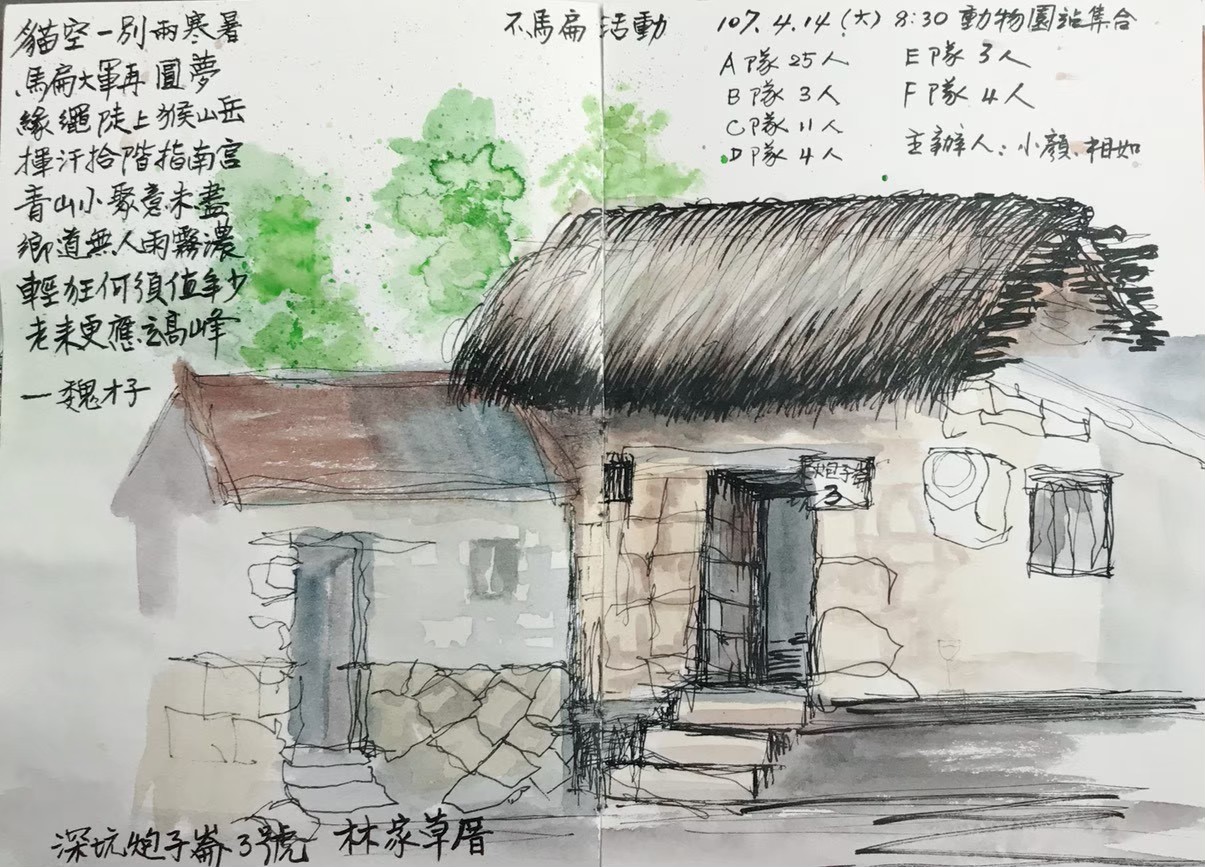 貓空一別兩寒暑
馬扁大軍再圓夢
緣繩陡上猴山岳
揮汗拾階指南宮
青山小聚意未盡
鄉道無人雨霧濃
輕狂何須值年少
老來更應玄高峰
一魏才子
不馬扁活動
107.4.14(六) 8:30 動物園站集合
A隊25人
B隊3人
C隊11人
D隊4人
E隊3人
F隊4人
主辦人:小顏、相如
炮子崙
3
深坑炮子崙3號 林家草厝